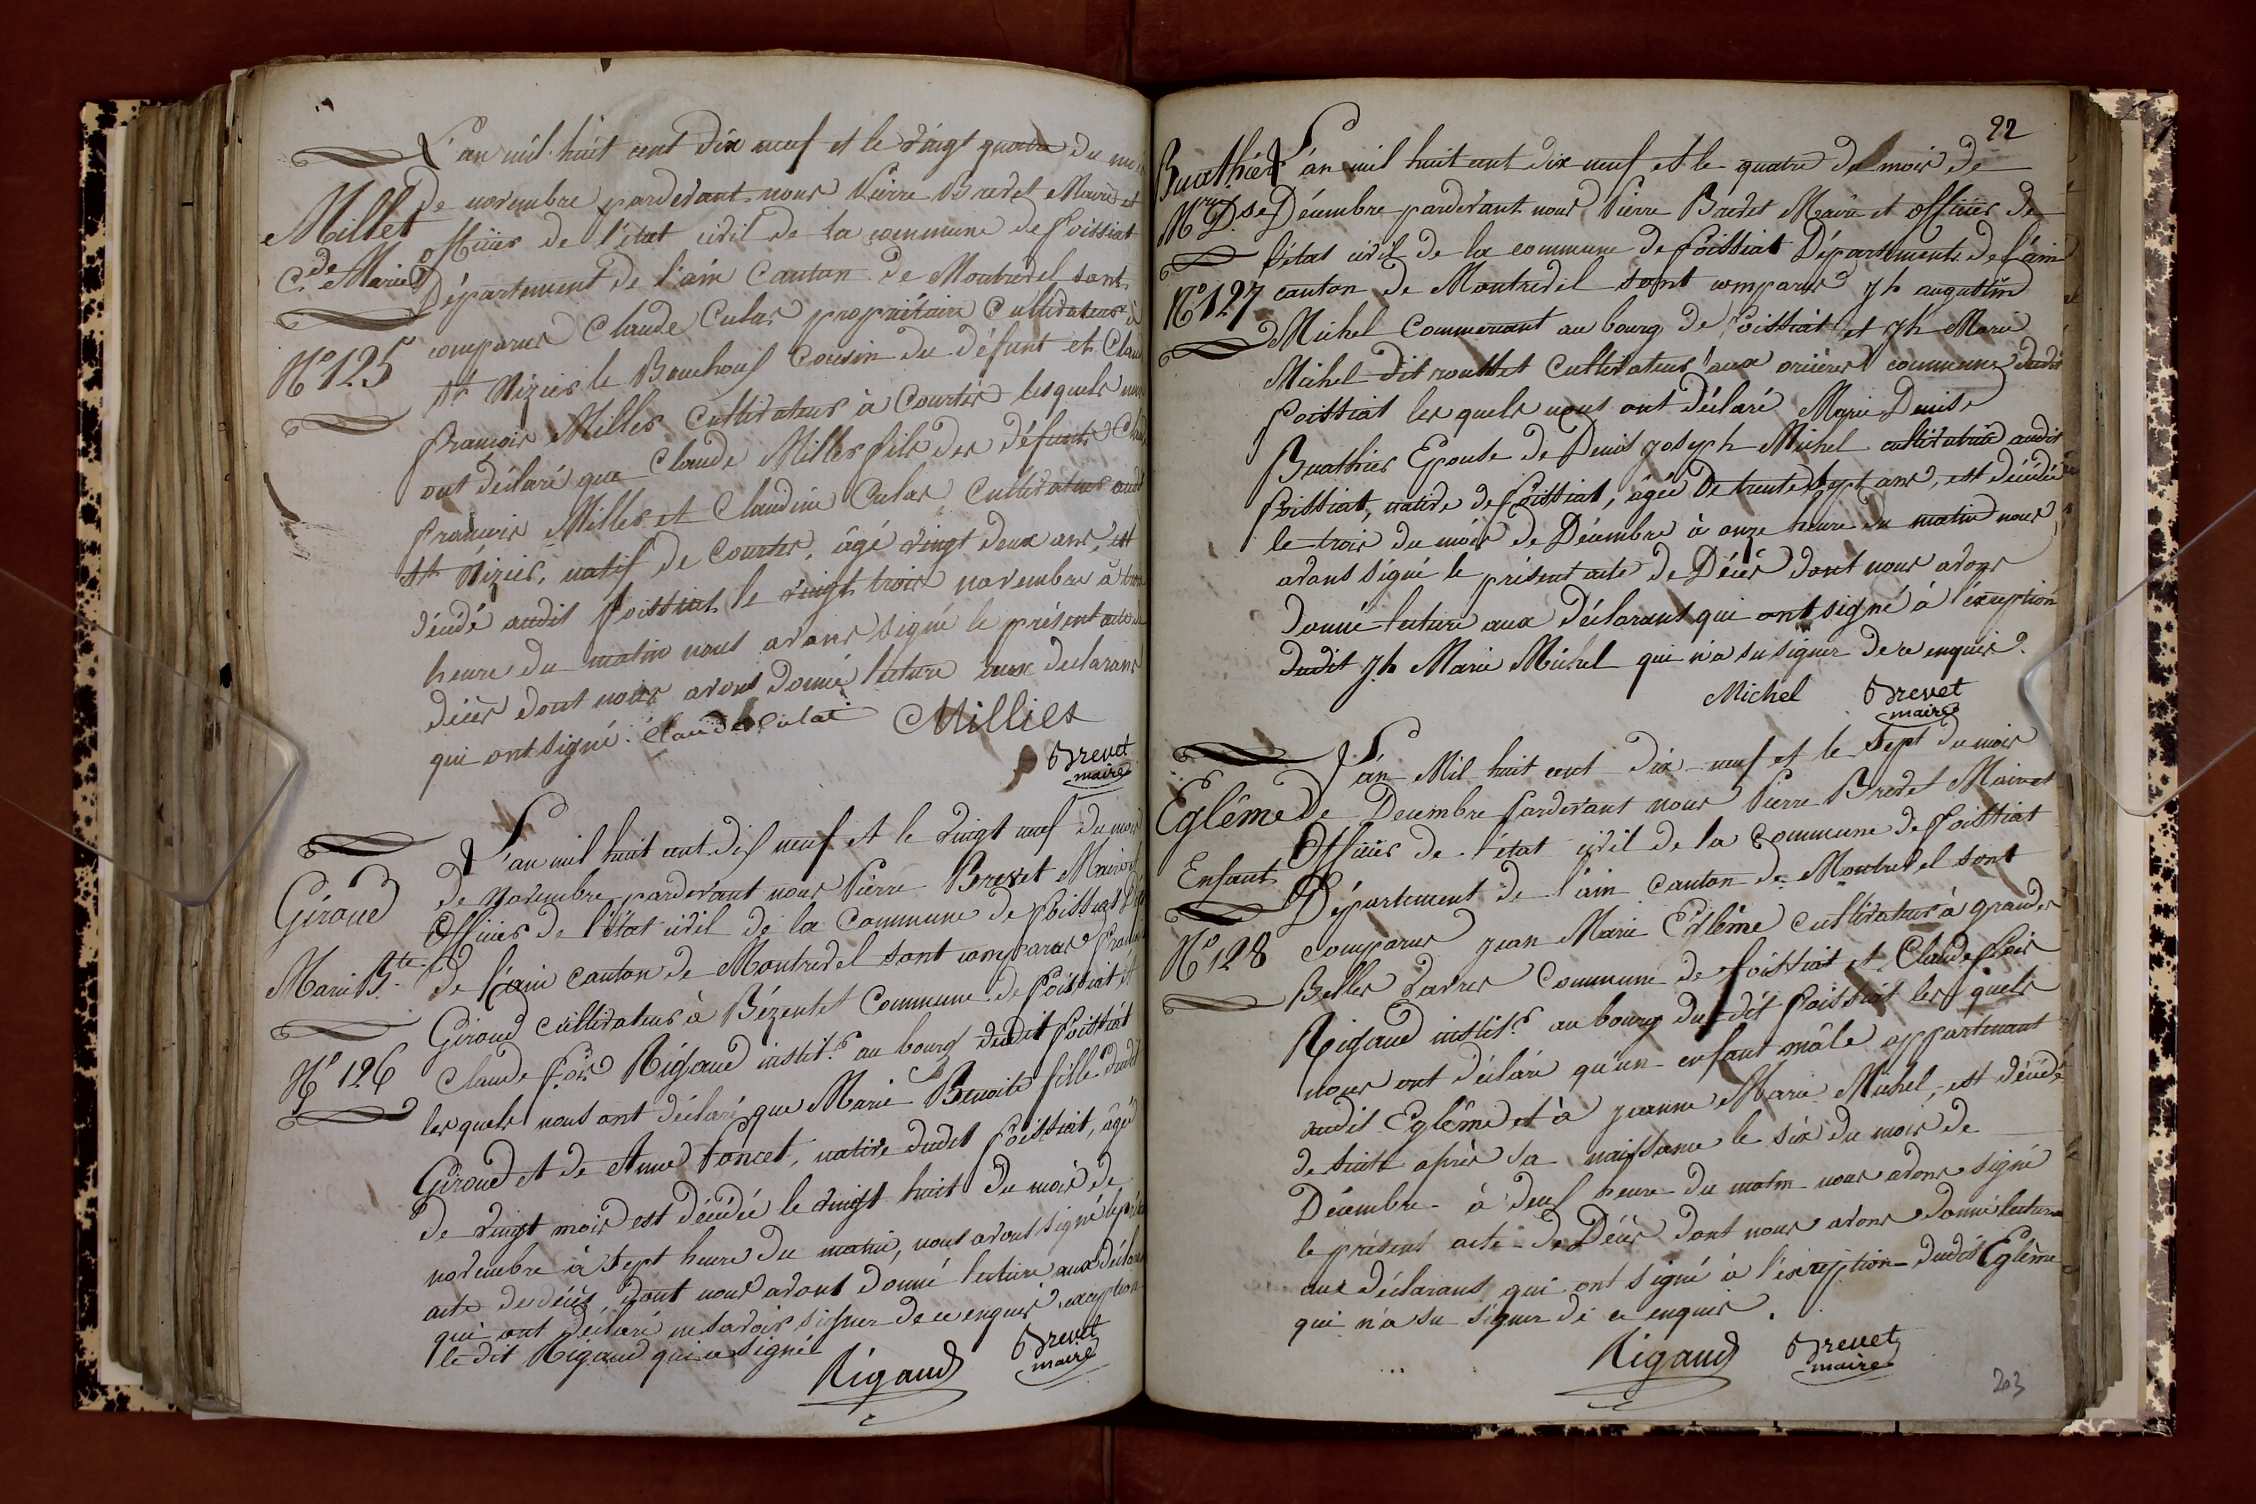 L'an mil huit cent dix neuf et le vingt quatre du mois
de novembre pardevant nous Pierre Brevet Maire et
officier de l'état civil de la commune de foissiat
Département de l'ain Canton de Montrevel sont
comparus Claude Culas propriétaire Cultivateur à
St Nizier le Bouchoux Cousin du défunt et Clau
françois Milles Cultivateur à Courtes lesquels nous
ont déclaré que Claude Milles fils des défunts
françois Milles et Claudine Culas Cultivateur audit
St Nizier, natif de Courtes, âgé vingt deux ans, est
décédé audit foissiat le vingt trois novembre à
heure du matin nous avons signé le présent acte de
décès dont nous avons donné lecture aux declarans
qui ont signé. Claude Culat Millies
Brevet
maire
Millet
C.de Marie
N.o 125
L'an mil huit cent dix neuf et le vingt neuf du mois
de Novembre pardevant nous Pierre Brevet Maire et
Officier de l'état civil de la Commune de foissiat Dép
de l'ain canton de Montrevel sont comparus
Giroud cultivateur à Bézentet Commune de foissiat et
Claude fois Rigaud instit.r au bourg dudit foissiat
lesquels nous ont déclaré que Marie Benoite fille dudit
Giroud et de Anne Poncet, native dudit foissiat, âgée
de vingt mois est décédée le vingt huit du mois de
novembre à sept heure du matin, nous avons signé le
acte de décès, dont nous avons donné lecture aux
qui ont déclaré ne savoir signer de ce enquis, exception
le dit Rigaud qui a signé
Rigaud Brevet
maire
Giroud
Marie B.te
N.o 126
22
L'an mil huit cent dix neuf et le quatre du mois de
Décembre pardevant nous Pierre Brevet Maire et officier de
l'état civil de la commune de foissiat Département de l'ain
canton de Montrevel sont comparus jh augustin
Michel Commerçant au bourg de foissiat et jh Marie
Michel dit rousset Cultivateur aux orcières commune dudit
foissiat les quels nous ont déclaré Marie Denise
Buathier Epouse de Denis joseph Michel cultivatrice audit
foissiat, native de foissiat, âgée de trente sept ans, est décédée
le trois du mois de Décembre à onze heure du matin nous
avons signé le présent acte de Décès dont nous avons
donné lecture aux déclarans qui ont signé à l'exception
dudit jh Marie Michel qui n'a su signer de ce enquis.
Michel Brevet
maire
Buathier
M.rie D.se
N.o 127
L'an Mil huit cent dix neuf et le sept du mois
de Decembre Pardevant nous Pierre Brevet Maire et
Officier de l'état civil de la Commune de foissiat
Département de l'ain Canton de Montrevel sont
comparus jean Marie Eglême cultivateur à grandes
Belles vavres Commune de foissiat et Claude fois
Rigaud instit.r au bourg du dit foissiat les quels
nous ont déclaré qu'un enfant mâle appartenant
audit Eglême et à jeanne Marie Michel, est décédé
de suite après sa naissance le six du mois de
Décembre à deux heure du matin nous avons signé
le présent acte de Décès dont nous avons donné lecture
aux déclarans qui ont signé à l'exception dudit Eglême
qui n'a su signer de ce enquis.
Rigaud Brevet
maire
Eglême
Enfant
N.o 128
203